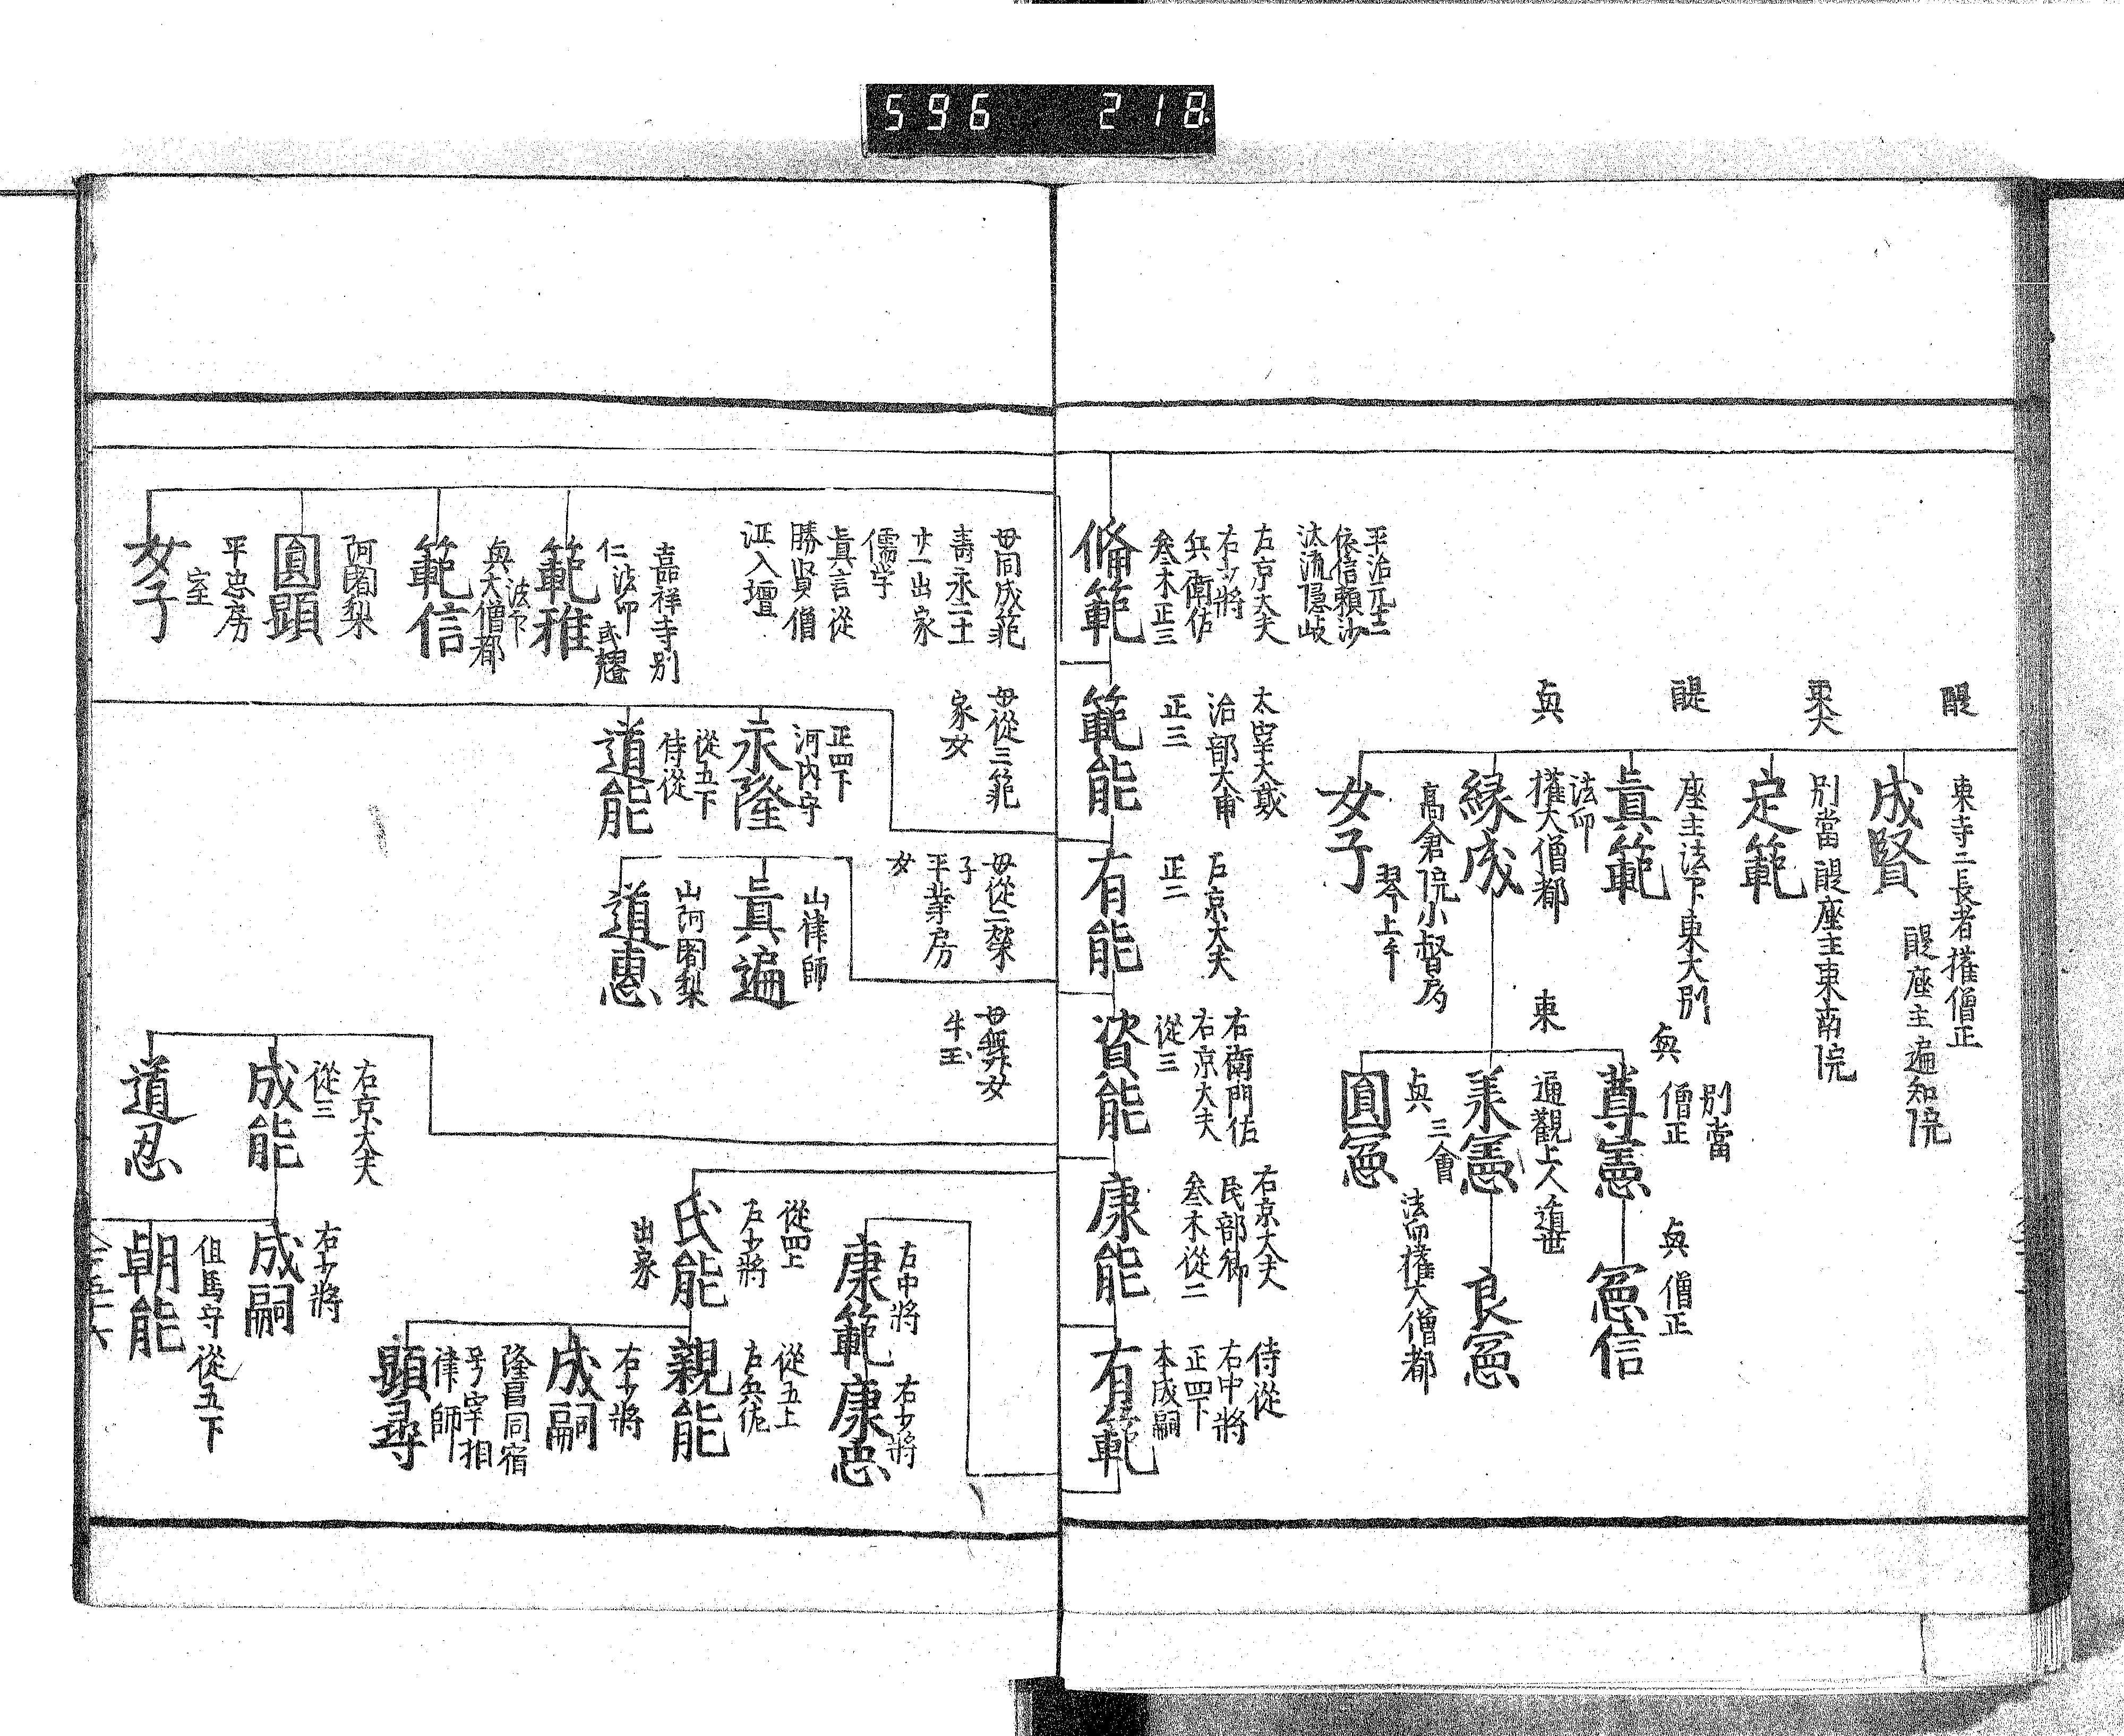 596 218
醍
東寺二長者權僧正
醍座主遍知院
成賢
東大
別當醍座主東南院
定範
醍
座主法下東大別
眞範
與
法印
權大僧都
縁成
高倉院小督局
琴上手
女子
別當
與僧正
尊憲
與僧正
憲信
東
通觀上人遁世
良憲
與三會
法印權大僧都
圓憲
平治元十二
依信賴沙
汰流隱岐
左京大夫
右少將
兵衛佐
参木正三
脩範
太宰大貳
治部大甫
正三
範能
右京大夫
正二
有能
右衛門佐
右京大夫
從三
資能
右京大夫
民部卿
参木從二
康能
侍從
右中將
正四下
本成嗣
有範
母同成範
壽永二十
廿一出家
儒学
眞言從
勝賢僧
正入壇
嘉祥寺別
仁法印
範雅
法下
與大僧都
範信
阿闍梨
圓顕
平忠房
室
女子
母從三範
家女
正四下
河内守
永隆
從五下
侍從
道能
母從二
子
平業房
女
山律師
眞遍
山阿闍梨
道惠
母舞女
牛玉
右京大夫
從三
成能
道忍
右少將
成嗣
但馬守從五下
朝能
右中將
康範
右少將
康忠
從四上
右少將
氏能
出家
從五上
右兵佐
親能
右少將
成嗣
隆昌同宿
号宰相
律師
顕尋